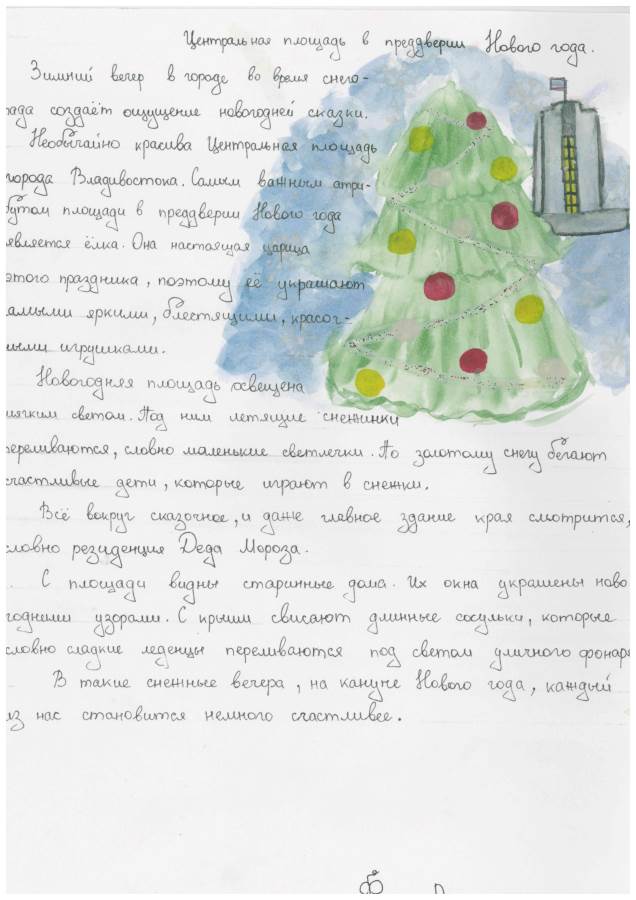 Центральная площадь в преддверии Нового года.
Зимний вечер в городе во время снего-
пада создаёт ощущение новогодней сказки.
Необычайно красива Центральная площадь
города Владивостока. Самым важным атри-
бутом площади в преддверии Нового года
является ёлка. Она настоящая царица
этого праздника, поэтому её украшают
самыми яркими, блестящими, красоч-
ными игрушками.
Новогодняя площадь освещена
мягким светом. Под ним летящие снежинки
переливаются, словно маленькие светлечки. По золотому снегу бегают
счастливые дети, которые играют в снежки.
Всё вокруг сказочное, и даже главное здание края смотрится,
словно резиденция Деда Мороза.
С площади видны старинные дома. Их окна украшены ново
годними узорами. С крыши свисают длинные сосульки, которые
словно сладкие леденцы переливаются под светом уличного фонаря
В такие снежные вечера, на кануне Нового года, каждый
из нас становится немного счастливее.